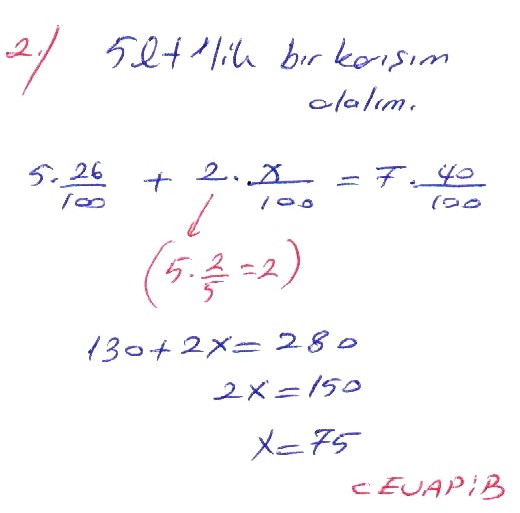 2.) 5lt'lik bir karışım
alalım.
5. 26/100 + 2. x/100 = 7. 40/100
(5. 2/5 = 2)
130 + 2x = 280
2x = 150
x = 75
CEVAP: B